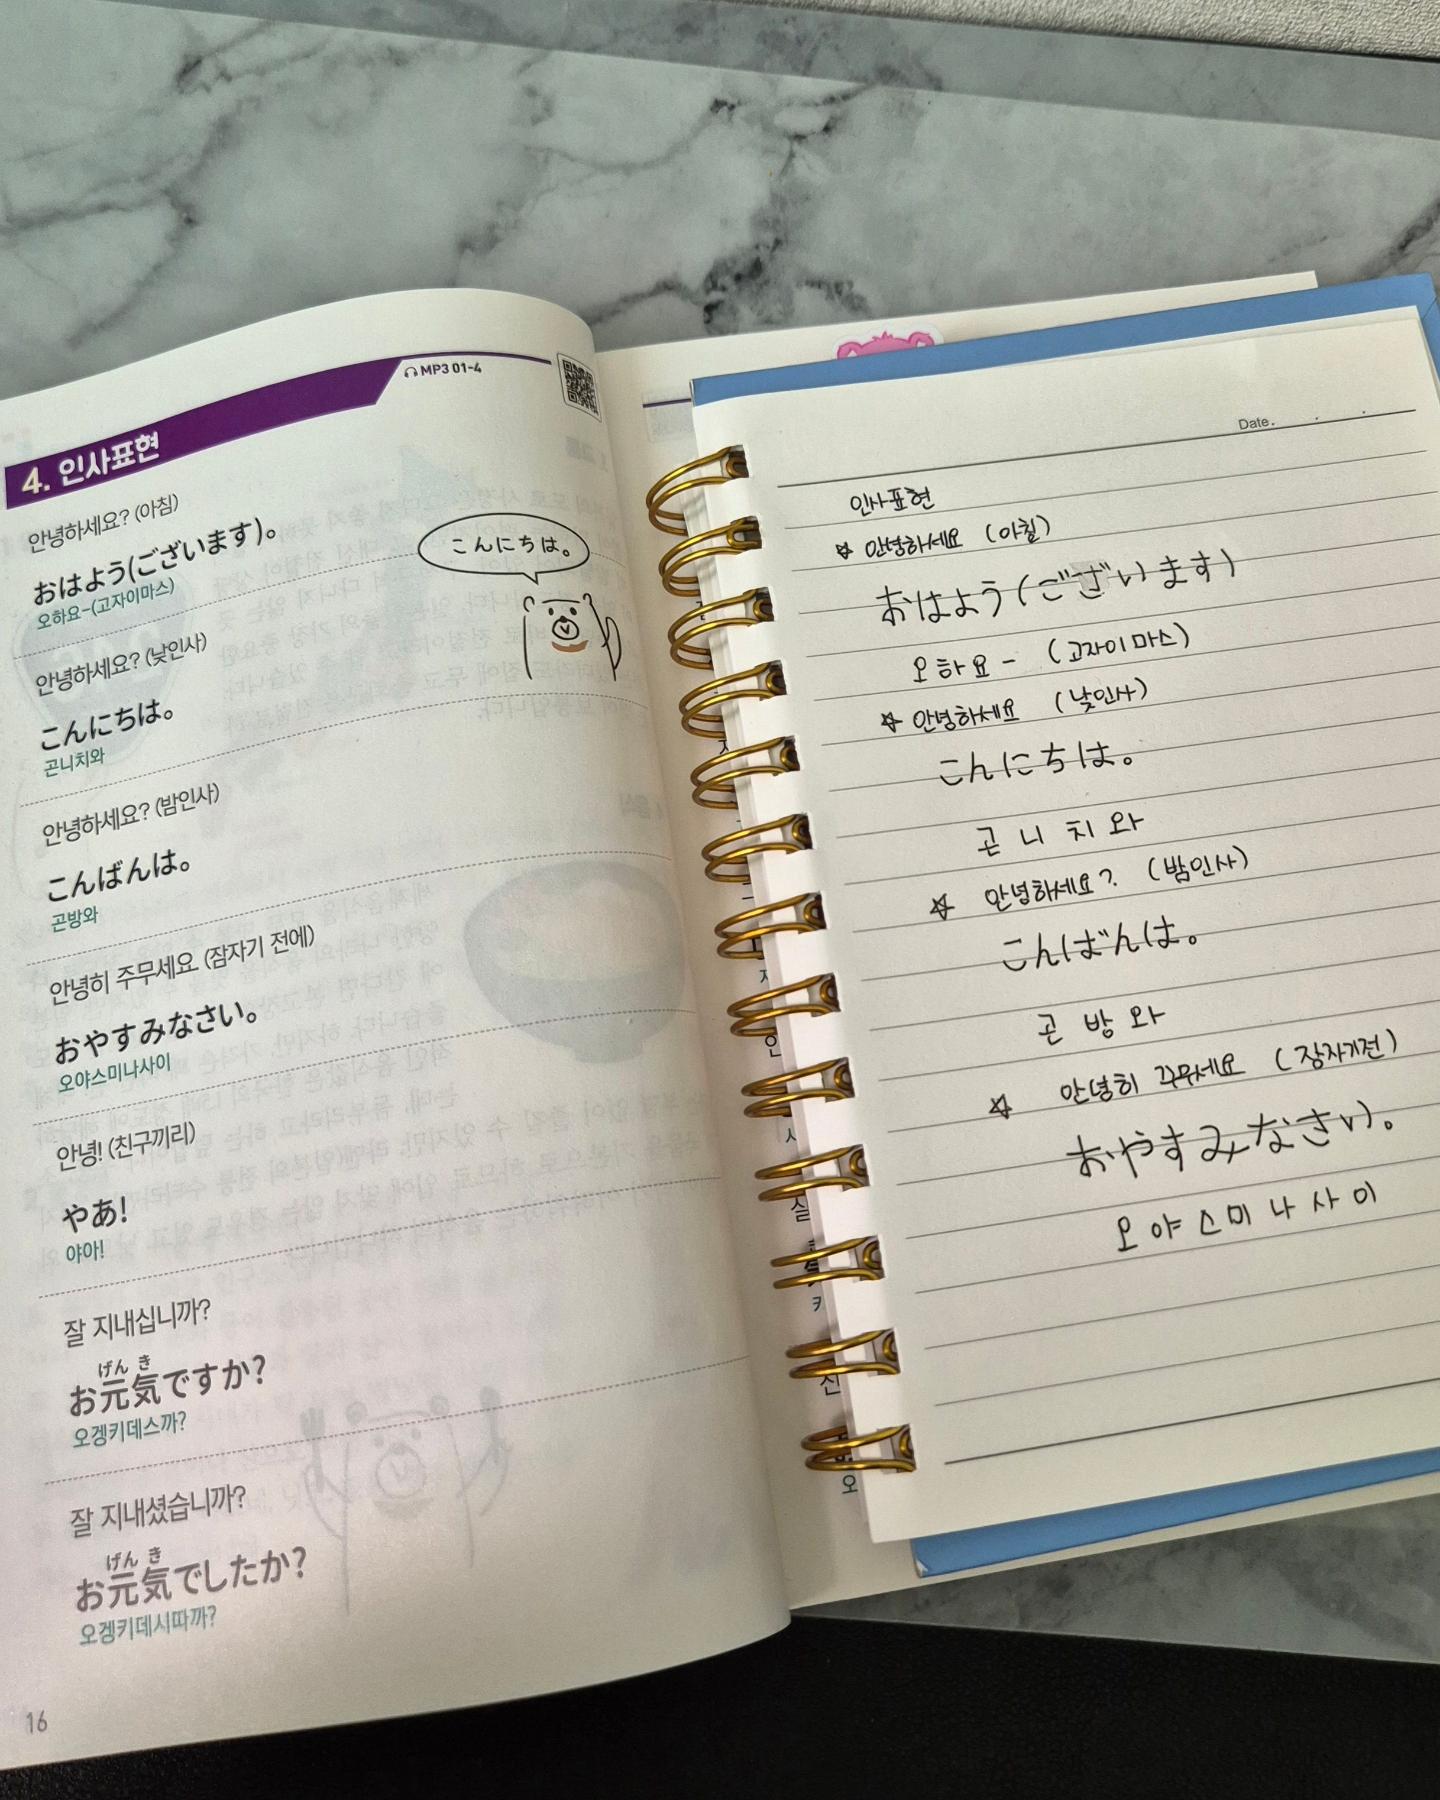 4. 인사표현
MP3 01-4
안녕하세요? (아침)
おはよう(ございます)。
오하요-(고자이마스)
こんにちは。
안녕하세요? (낮인사)
こんにちは。
곤니치와
안녕하세요? (밤인사)
こんばんは。
곤방와
안녕히 주무세요 (잠자기 전에)
おやすみなさい。
오야스미나사이
안녕! (친구끼리)
やあ!
야아!
잘 지내십니까?
げん き
お元気ですか?
오겡키데스까?
잘 지내셨습니까?
げん き
お元気でしたか?
오겡키데시따까?
16
Date.
인사표현
☆ 안녕하세요 (아침)
おはよう(ございます)
오하요- (고자이마스)
☆ 안녕하세요 (낮인사)
こんにちは。
곤니치와
☆ 안녕하세요? (밤인사)
こんばんは。
곤방와
☆ 안녕히 주무세요 (잠자기전)
おやすみなさい。
오야스미나사이